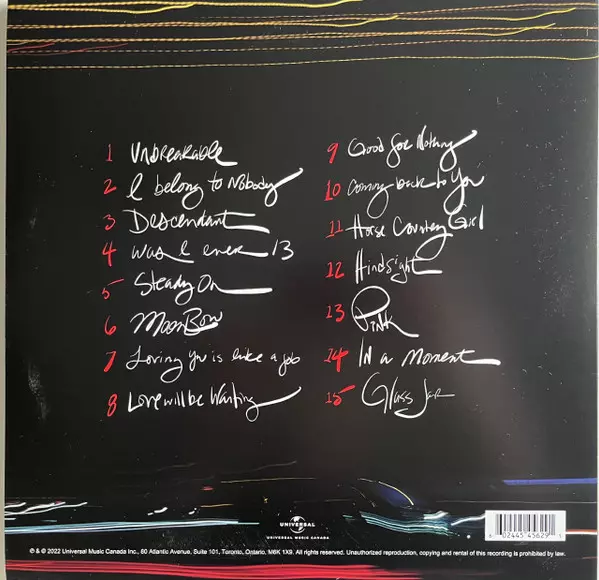 1 Unbreakable
2 I belong to Nobody
3 Descendant
4 was I ever 13
5 Steady On
6 MoonBow
7 Loving You is like a job
8 Love will be Waiting
9 Good for Nothing
10 Coming back to You
11 Horse Country Girl
12 Hindsight
13 Pink
14 IN a Moment
15 Glass Jar
UNIVERSAL
UNIVERSAL MUSIC CANADA
6 02445 45629 5
℗ & © 2022 Universal Music Canada Inc., 80 Atlantic Avenue, Suite 101, Toronto, Ontario, M6K 1X9. All rights reserved. Unauthorized reproduction, copying and rental of this recording is prohibited by law.